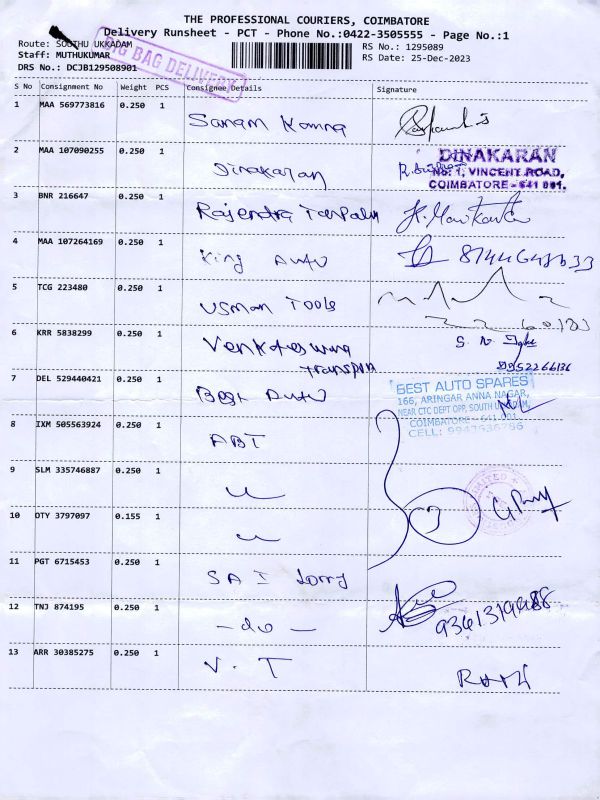 THE PROFESSIONAL COURIERS, COIMBATORE
Delivery Runsheet - PCT - Phone No.:0422-3505555 - Page No.:1
Route: SOUTHU UKKADAM
RS No.: 1295089
Staff: MUTHUKUMAR
RS Date: 25-Dec-2023
DRS No.: DCJB129508901
BIG BAG DELIVERY
S No Consignment No Weight PCS Consignee Details Signature
1 MAA 569773816 0.250 1 Sanam
2 MAA 107090255 0.250 1 Dinakaran
DINAKARAN
No: 1, VINCENT ROAD,
COIMBATORE - 641 001.
3 BNR 216647 0.250 1 Rajendra Tarpalin
4 MAA 107264169 0.250 1 King Auto
5 TCG 223480 0.250 1 Usman Tools
6 KRR 5838299 0.250 1 Venkateswara
Transport
7 DEL 529440421 0.250 1 Best Auto
BEST AUTO SPARES
166, ARINGAR ANNA NAGAR,
NEAR CTC DEPT OPP, SOUTH UKKADAM,
COIMBATORE - 641 001
8 IXM 505563924 0.250 1 ABT
9 SLM 335746887 0.250 1 〃
10 DTY 3797097 0.155 1 〃
11 PGT 6715453 0.250 1 SAI Lorry
12 TNJ 874195 0.250 1 - do -
13 ARR 30385275 0.250 1 V. T